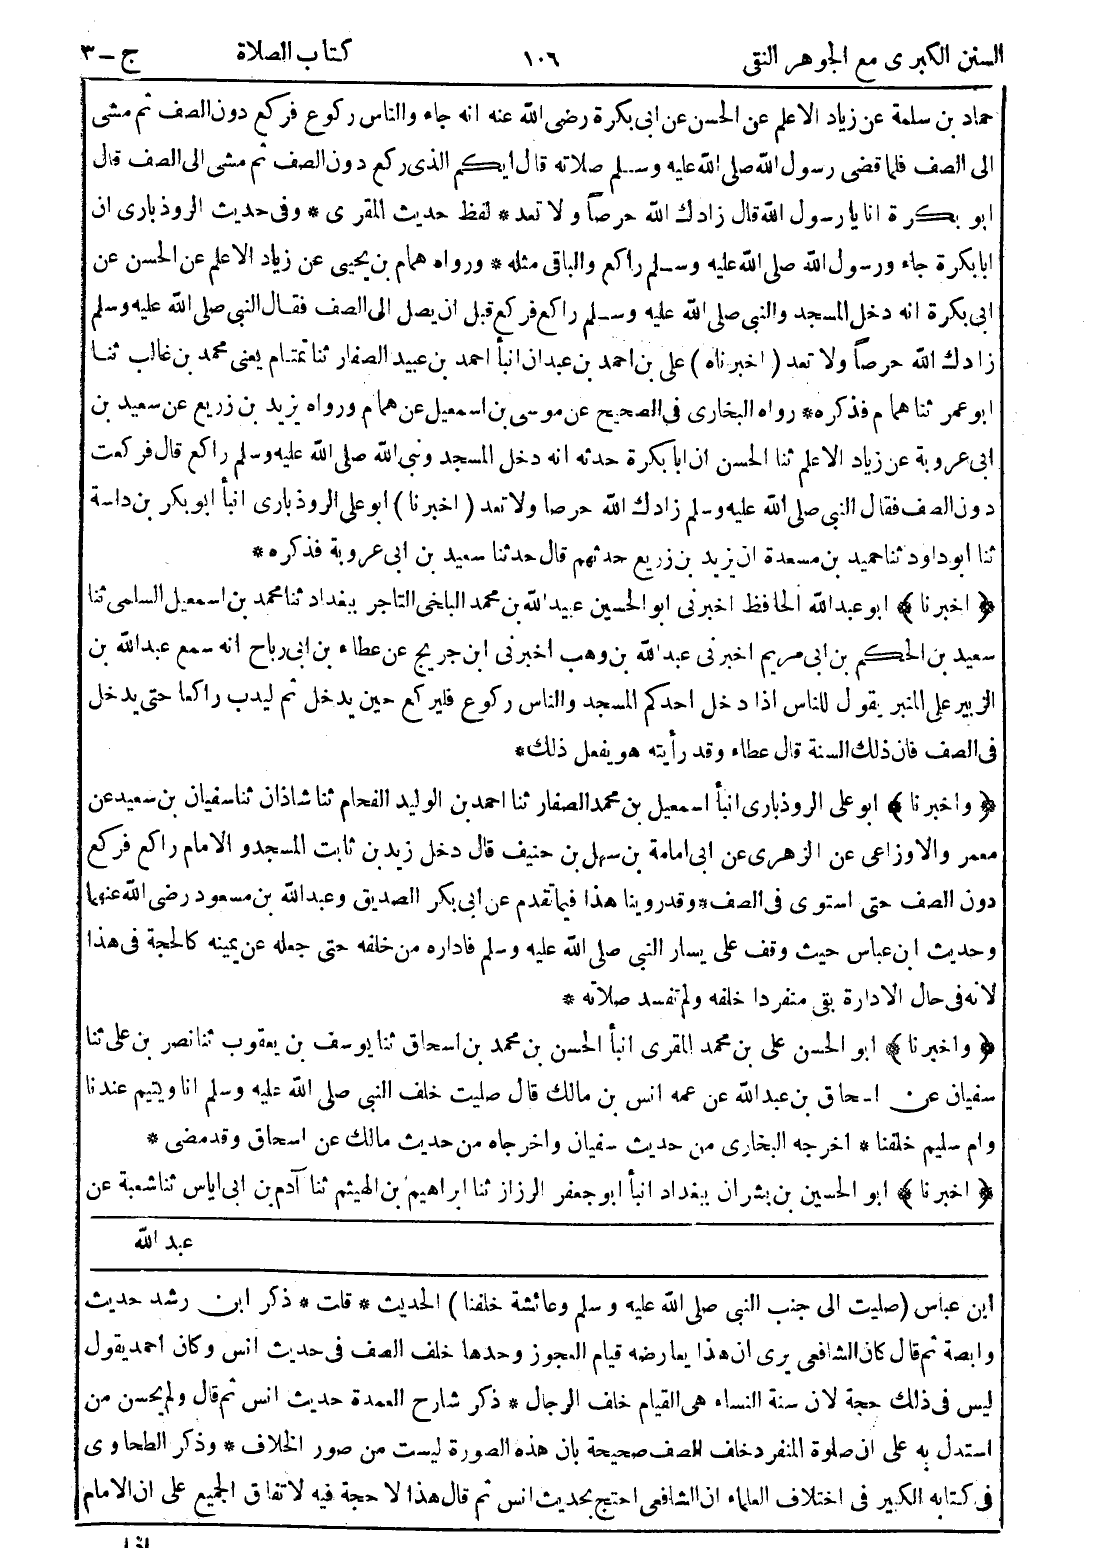 السنن الكبرى مع الجوهر النقى ١٠٦ كتاب الصلاة ج - ٣
حماد بن سلمة عن زياد الاعلم عن الحسن عن ابى بكرة رضى الله عنه انه جاء والناس ركوع فركع دون الصف ثم مشى
الى الصف فلما قضى رسول الله صلى الله عليه وسلم صلاته قال ايكم الذى ركع دون الصف ثم مشى الى الصف قال
ابو بكرة انا يا رسول الله قال زادك الله حرصاً ولا تعد * لفظ حديث المقرى * وفى حديث الروذبارى ان
ابا بكرة جاء ورسول الله صلى الله عليه وسلم راكع والباقى مثله * ورواه همام بن يحيى عن زياد الاعلم عن الحسن عن
ابى بكرة انه دخل المسجد والنبى صلى الله عليه وسلم راكع فركع قبل ان يصل الى الصف فقال النبى صلى الله عليه وسلم
زادك الله حرصاً ولا تعد (اخبرناه) على بن احمد بن عبدان انبأ احمد بن عبيد الصفار ثنا تمتام يعنى محمد بن غالب ثنا
ابو عمر ثنا همام فذكره * رواه البخارى فى الصحيح عن موسى بن اسمعيل عن همام ورواه يزيد بن زريع عن سعيد بن
ابى عروبة عن زياد الاعلم ثنا الحسن ان ابا بكرة حدثه انه دخل المسجد ونبى الله صلى الله عليه وسلم راكع قال فركعت
دون الصف فقال النبى صلى الله عليه وسلم زادك الله حرصا ولا تعد (اخبرنا) ابو على الروذبارى انبأ ابو بكر بن داسة
ثنا ابو داود ثنا حميد بن مسعدة ان يزيد بن زريع حدثهم قال حدثنا سعيد بن ابى عروبة فذكره *
﴿ اخبرنا ﴾ ابو عبد الله الحافظ اخبرنى ابو الحسين عبيد الله بن محمد البلخى التاجر ببغداد ثنا محمد بن اسمعيل السلمى ثنا
سعيد بن الحكم بن ابى مريم اخبرنى عبد الله بن وهب اخبرنى ابن جريج عن عطاء بن ابى رباح انه سمع عبد الله بن
الزبير على المنبر يقول للناس اذا دخل احدكم المسجد والناس ركوع فليركع حين يدخل ثم ليدب راكعا حتى يدخل
فى الصف فان ذلك السنة قال عطاء وقد رأيته هو يفعل ذلك *
﴿ واخبرنا ﴾ ابو على الروذبارى انبأ اسمعيل بن محمد الصفار ثنا احمد بن الوليد الفحام ثنا شاذان ثنا سفيان بن سعيد عن
معمر والاوزاعى عن الزهرى عن ابى امامة بن سهل بن حنيف قال دخل زيد بن ثابت المسجد والامام راكع فركع
دون الصف حتى استوى فى الصف * وقد روينا هذا فيما تقدم عن ابى بكر الصديق وعبد الله بن مسعود رضى الله عنهما
وحديث ابن عباس حيث وقف على يسار النبى صلى الله عليه وسلم فاداره من خلفه حتى جعله عن يمينه كالحجة فى هذا
لانه فى حال الادارة بقى منفردا خلفه ولم تفسد صلاته *
﴿ واخبرنا ﴾ ابو الحسن على بن محمد المقرى انبأ الحسن بن محمد بن اسحاق ثنا يوسف بن يعقوب ثنا نصر بن على ثنا
سفيان عن اسحاق بن عبد الله عن عمه انس بن مالك قال صليت خلف النبى صلى الله عليه وسلم انا ويتيم عندنا
وام سليم خلفنا * اخرجه البخارى من حديث سفيان واخرجاه من حديث مالك عن اسحاق وقد مضى *
﴿ اخبرنا ﴾ ابو الحسين بن بشران ببغداد انبأ ابو جعفر الرزاز ثنا ابراهيم بن الهيثم ثنا آدم بن ابى اياس ثنا شعبة عن
عبد الله
ابن عباس (صليت الى جنب النبى صلى الله عليه وسلم وعائشة خلفنا) الحديث * قلت * ذكر ابن رشد حديث
وابصة ثم قال كان الشافعى يرى ان هذا يعارضه قيام العجوز وحدها خلف الصف فى حديث انس وكان احمد يقول
ليس فى ذلك حجة لان سنة النساء هى القيام خلف الرجال * ذكر شارح العمدة حديث انس ثم قال ولم يحسن من
استدل به على ان صلوة المنفرد خلف الصف صحيحة بان هذه الصورة ليست من صور الخلاف * وذكر الطحاوى
فى كتابه الكبير فى اختلاف العلماء ان الشافعى احتج بحديث انس ثم قال هذا لا حجة فيه لاتفاق الجميع على ان الامام